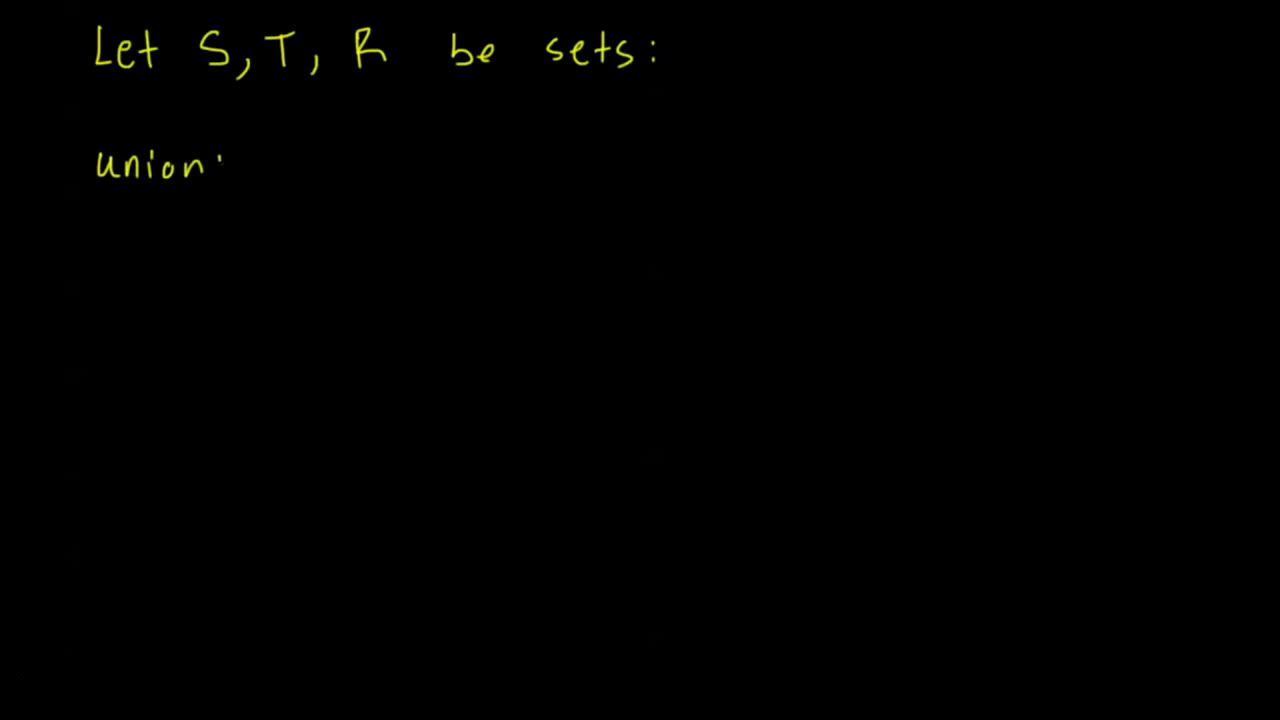 Let S, T, R be sets:
union